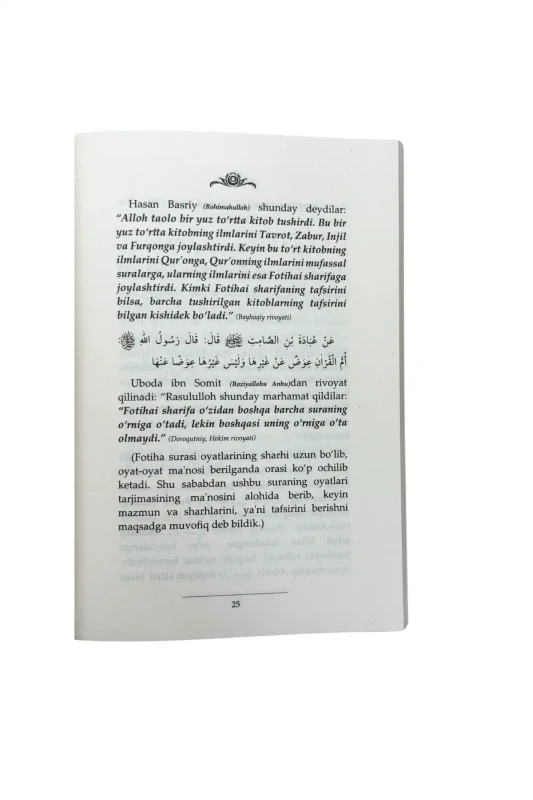 Hasan Basriy (Rohimahulloh) shunday deydilar:
“Alloh taolo bir yuz to‘rtta kitob tushirdi. Bu bir
yuz to‘rtta kitobning ilmlarini Tavrot, Zabur, Injil
va Furqonga joylashtirdi. Keyin bu to‘rt kitobning
ilmlarini Qur'onga, Qur'onning ilmlarini mufassal
suralarga, ularning ilmlarini esa Fotihai sharifaga
joylashtirdi. Kimki Fotihai sharifaning tafsirini
bilsa, barcha tushirilgan kitoblarning tafsirini
bilgan kishidek bo‘ladi.” (Bayhaqiy rivoyati)
عَنْ عُبَادَةَ بْنِ الصَّامِتِ ﷺ قَالَ: قَالَ رَسُولُ اللهِ ﷺ:
أُمُّ الْقُرْآنِ عِوَضٌ عَنْ غَيْرِهَا وَلَيْسَ غَيْرُهَا عِوَضًا عَنْهَا
Uboda ibn Somit (Roziyallohu Anhu)dan rivoyat
qilinadi: “Rasululloh shunday marhamat qildilar:
“Fotihai sharifa o‘zidan boshqa barcha suraning
o‘rniga o‘tadi, lekin boshqasi uning o‘rniga o‘ta
olmaydi.” (Doroqutniy, Hokim rivoyati)
(Fotiha surasi oyatlarining sharhi uzun bo‘lib,
oyat-oyat ma'nosi berilganda orasi ko‘p ochilib
ketadi. Shu sababdan ushbu suraning oyatlari
tarjimasining ma'nosini alohida berib, keyin
mazmun va sharhlarini, ya'ni tafsirini berishni
maqsadga muvofiq deb bildik.)
25